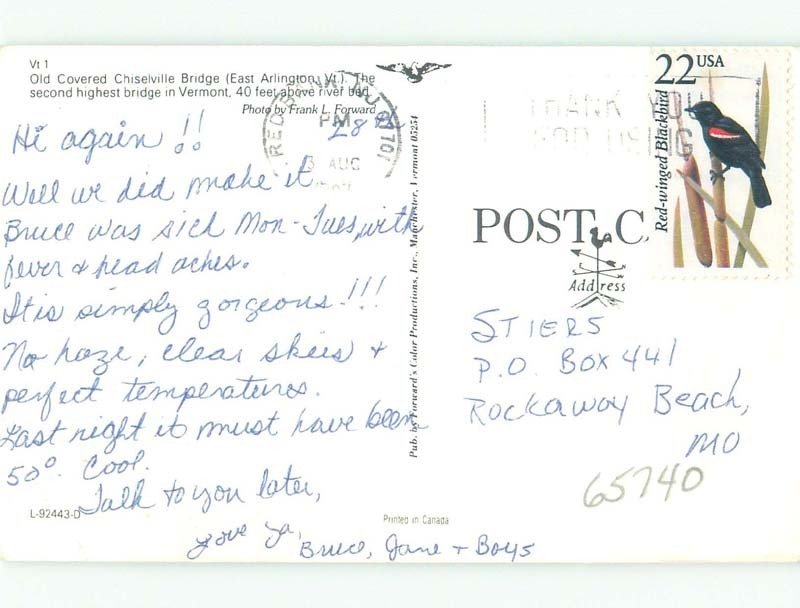 Vt 1
Old Covered Chiselville Bridge (East Arlington, Vt.). The
second highest bridge in Vermont, 40 feet above river bed.
Photo by Frank L. Forward
Hi again !!
Well we did make it.
Bruce was sick Mon-Tues, with
fever & head aches.
It is simply gorgeous!!!
No haze, clear skies &
perfect temperatures.
Last night it must have been
50°. Cool.
Talk to you later,
Love Ya,
Bruce, Jane + Boys
L-92443-D
Printed in Canada
Pub. by Forward's Color Productions, Inc., Manchester, Vermont 05254
RED BANK NJ 07701
PM
AUG
THANK YOU
FOR USING
22 USA
Red-winged Blackbird
POST C
Address
STIERS
P.O. BOX 441
Rockaway Beach,
MO
65740